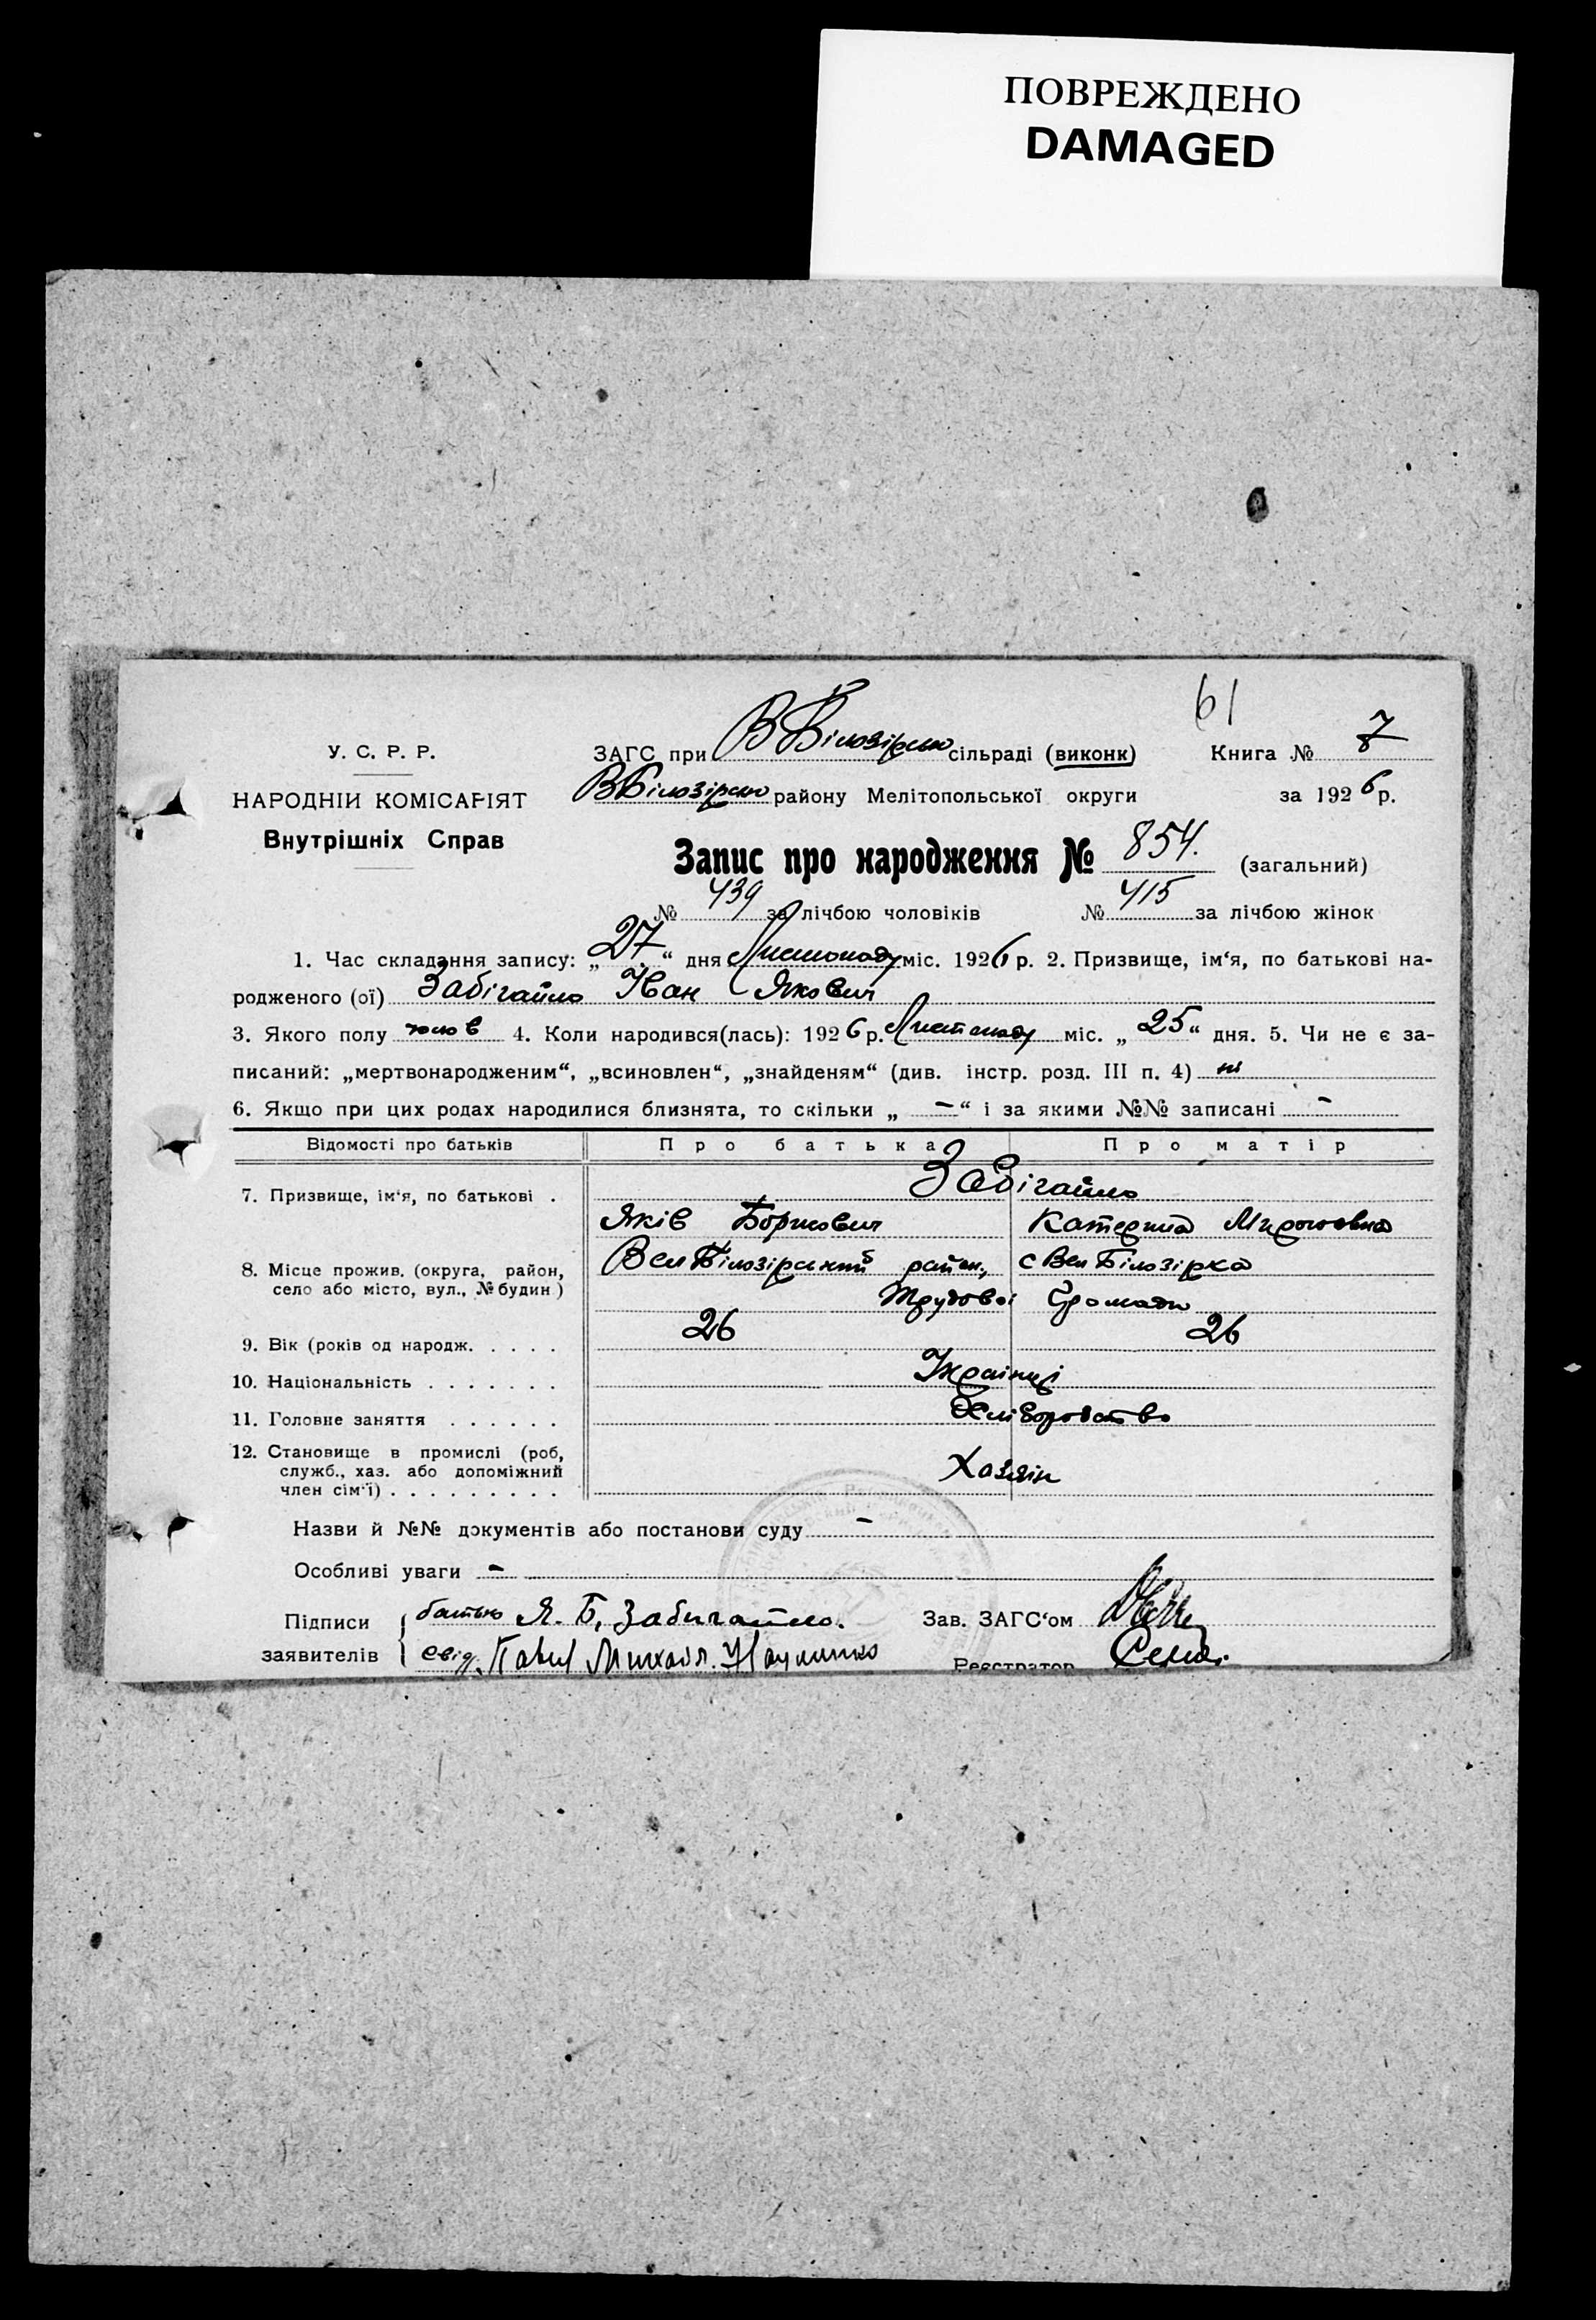 ПОВРЕЖДЕНО
DAMAGED
61
У. С. Р. Р.
НАРОДНІЙ КОМІСАРІЯТ
Внутрішніх Справ
ЗАГС при В Білозірськ сільраді (виконк) Книга № 7
В Білозірськ району Мелітопольської округи за 1926 р.
Запис про народження № 854. (загальний)
№ 439 за лічбою чоловіків № 415 за лічбою жінок
1. Час складання запису: „27“ дня Листопаду міс. 1926 р. 2. Призвище, ім‘я, по батькові на-
родженого (ої) Забігайло Іван Якович
3. Якого полу чолов 4. Коли народився(лась): 1926 р. Листопаду міс. „25“ дня. 5. Чи не є за-
писаний: „мертвонародженим“, „всиновлен“, „знайденям“ (див. інстр. розд. III п. 4) ні
6. Якщо при цих родах народилися близнята, то скільки „ – “ і за якими №№ записані –
Відомості про батьків Про батька Про матір
7. Призвище, ім‘я, по батькові . Забігайло
Яків Борисович Катерина Мироновна
8. Місце прожив. (округа, район, село або місто, вул., № будин) Вел Білозірський район, с Вел Білозірка
Трудової Громади
9. Вік (років од народж. . . . . 26 26
10. Національність . . . . . . . Українці
11. Головне заняття . . . . . . Хліборобство
12. Становище в промислі (роб, служб., хаз. або допоміжний член сім‘ї) . . . . . . . . . Хазяїн
Назви й №№ документів або постанови суду –
Особливі уваги –
Підписи заявителів батько Я. Б. Забигайло. Зав. ЗАГС‘ом
свід. Павел Михайл. Реєстратор